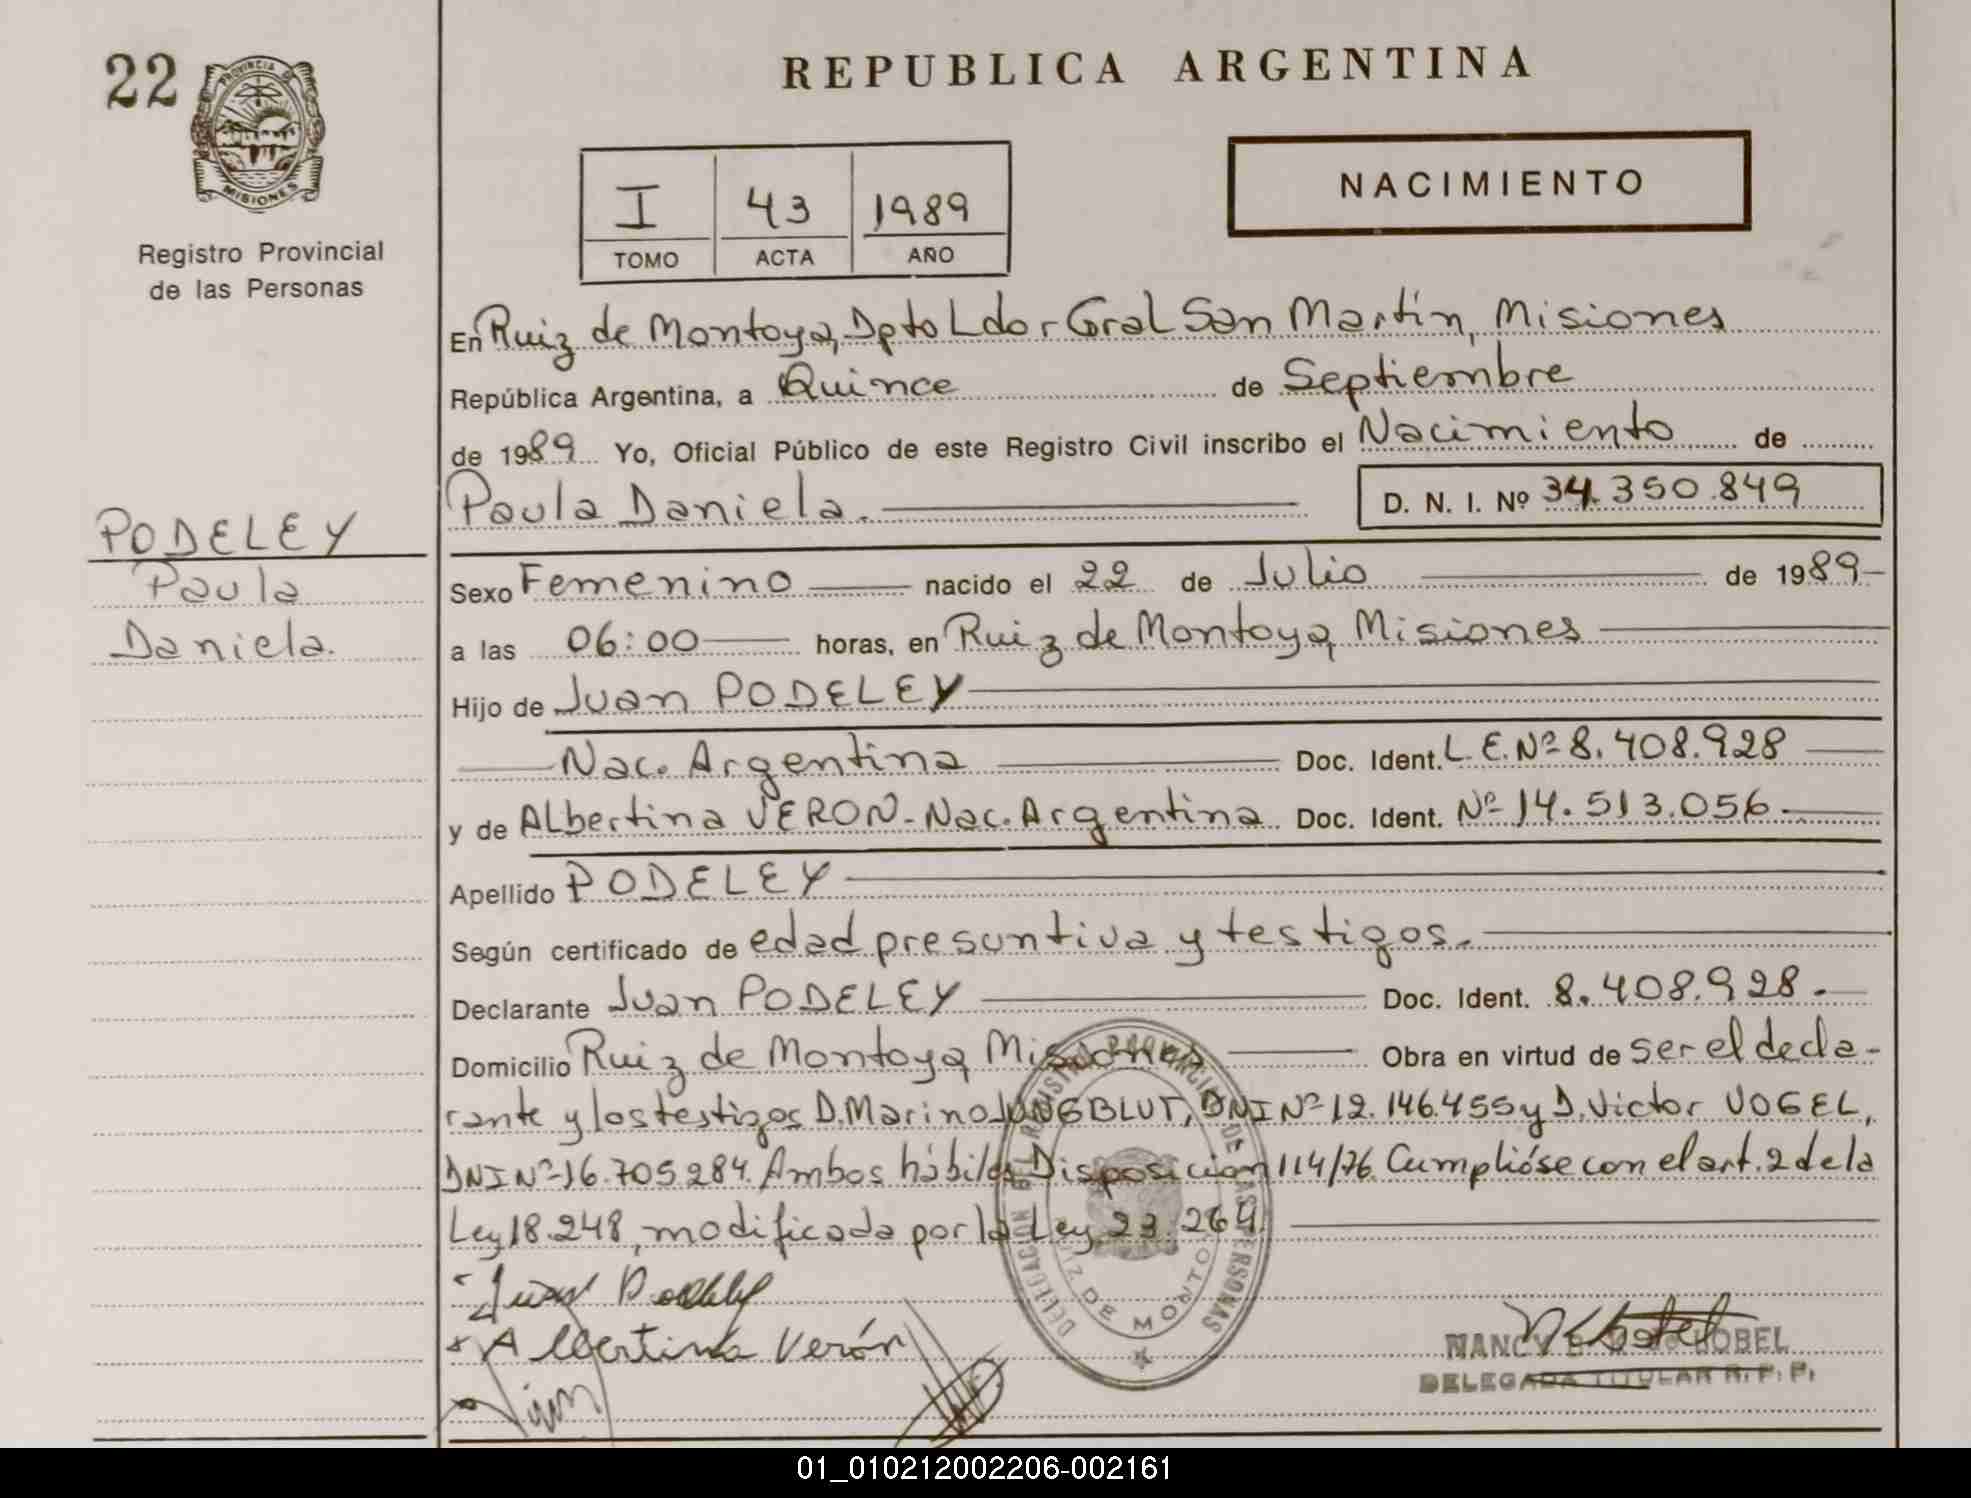 22
PROVINCIA DE
MISIONES
Registro Provincial
de las Personas
REPUBLICA ARGENTINA
I 43 1989
TOMO ACTA AÑO
NACIMIENTO
En Ruiz de Montoya, Dpto Ldor Gral San Martín, Misiones
República Argentina, a Quince de Septiembre
de 1989 Yo, Oficial Público de este Registro Civil inscribo el Nacimiento de
Paula Daniela. D. N. I. Nº 34.350.849
PODELEY
Paula
Daniela.
Sexo Femenino nacido el 22 de Julio de 1989
a las 06:00 horas, en Ruiz de Montoya, Misiones
Hijo de Juan PODELEY
Nac. Argentina Doc. Ident. L.E.Nº 8.408.928
y de ALbertina VERON-Nac. Argentina Doc. Ident. Nº 14.513.056
Apellido PODELEY
Según certificado de edad presuntiva y testigos.
Declarante Juan PODELEY Doc. Ident. 8.408.928.
Domicilio Ruiz de Montoya, Misiones Obra en virtud de ser el decla-
rante y los testigos D. Marino JUNGBLUT, DNI Nº 12.146.455 y D. Victor VOGEL,
DNI Nº 16.705.284. Ambos hábiles Disposición 114/76. Cumplióse con el art. 2 de la
Ley 18.248, modificada por la Ley 23.264.
DELEGACION DEL REGISTRO PROVINCIAL DE LAS PERSONAS
RUIZ DE MONTOYA
Juan Podeley
Albertina Verón
NANCY
DELEGADA TITULAR R. P. P.
01_010212002206-002161